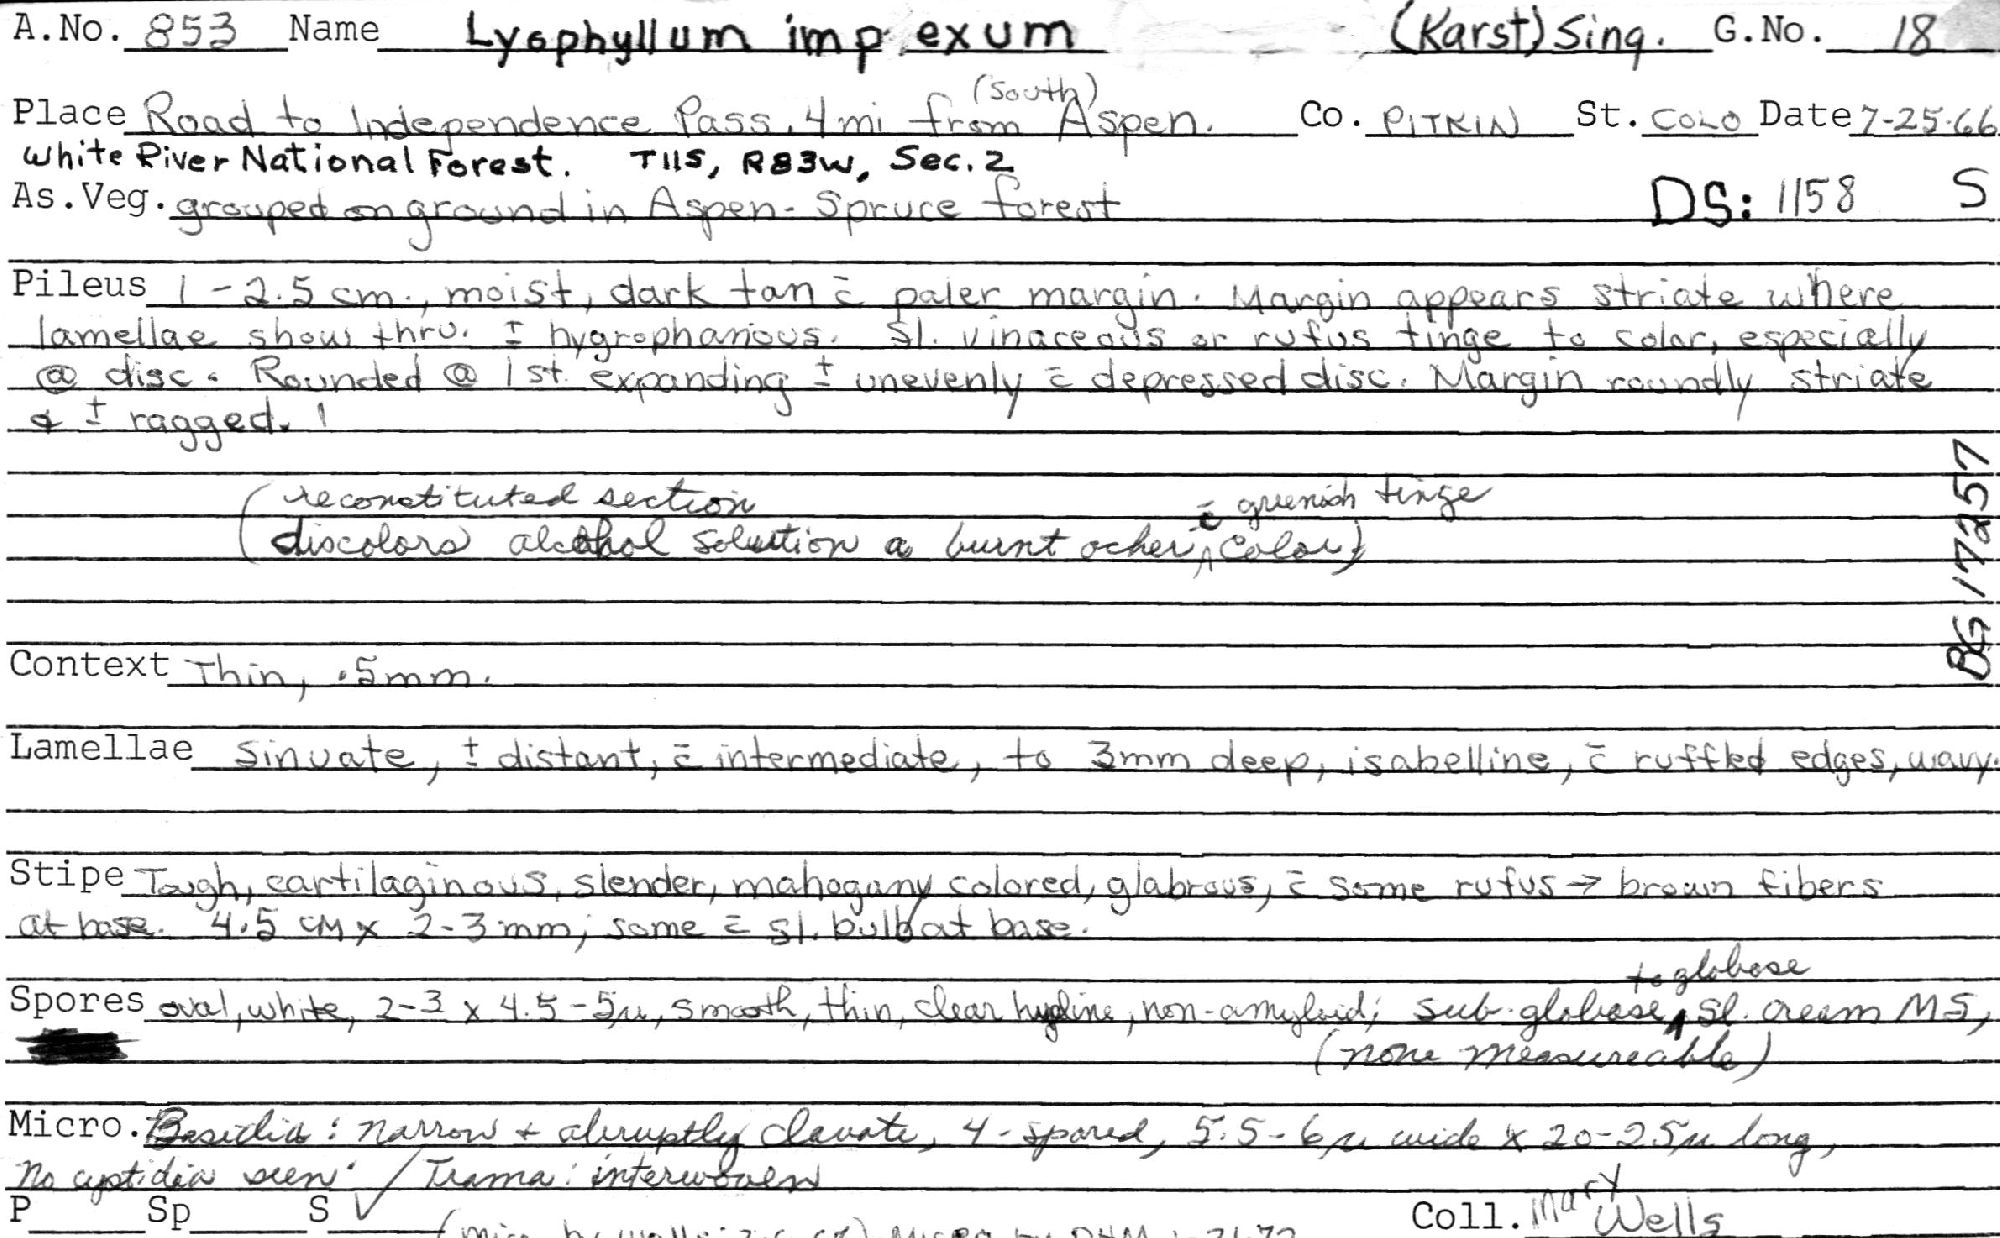 A.No. 853 Name Lyophyllum imp exum (Karst) Sing. G.No. 18
(South)
Place Road to Independence Pass, 4mi from Aspen. Co. PITKIN St. COLO Date 7-25-66
White River National Forest. T11S, R83W, Sec. 2
As.Veg. grouped on ground in Aspen-Spruce forest DS: 1158 S
Pileus 1-2.5 cm., moist, dark tan c̄ paler margin. Margin appears striate where
lamellae show thru. ± hygrophanous. Sl. vinaceous or rufus tinge to color, especially
@ disc. Rounded @ 1st expanding ± unevenly c̄ depressed disc. Margin roundly striate
& ± ragged.
(reconstituted section c̄ greenish tinge
discolors alcohol solution a burnt ocher, color)
BG 17257
Context Thin, .5mm.
Lamellae Sinuate, ± distant, c̄ intermediate, to 3mm deep, isabelline, c̄ ruffled edges, wavy.
Stipe Tough, cartilaginous, slender, mahogany colored, glabrous, c̄ some rufus → brown fibers
at base. 4.5 CM x 2-3 mm; some c̄ sl. bulb at base.
to globose
Spores oval, white, 2-3 x 4.5-5µ, smooth, thin, clear hyaline, non-amyloid; sub-globose, sl. cream MS,
(none measureable)
Micro. Basidia: narrow + abruptly clavate, 4-spored, 5.5-6µ wide x 20-25µ long,
No cystidia seen. / Trama: interwoven
P Sp S ✓ Coll. Mary Wells